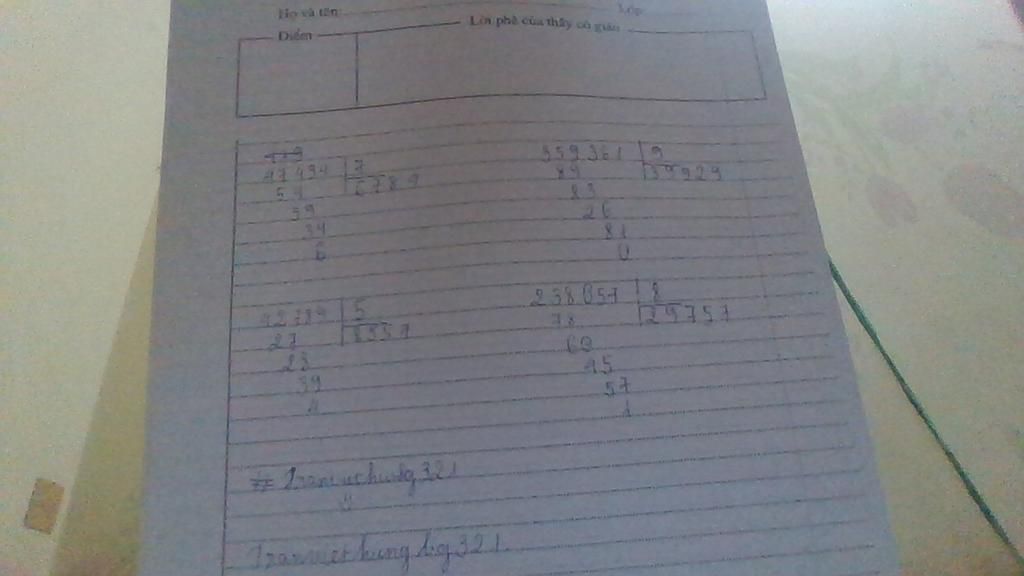 Họ và tên: Lớp
Điểm Lời phê của thầy cô giáo
47494 7
54 6784
59
34
6
359361 9
89 39929
83
26
81
0
42789 5
27 8557
28
39
4
238057 8
78 29757
60
45
57
1
Tranviethung lig321.